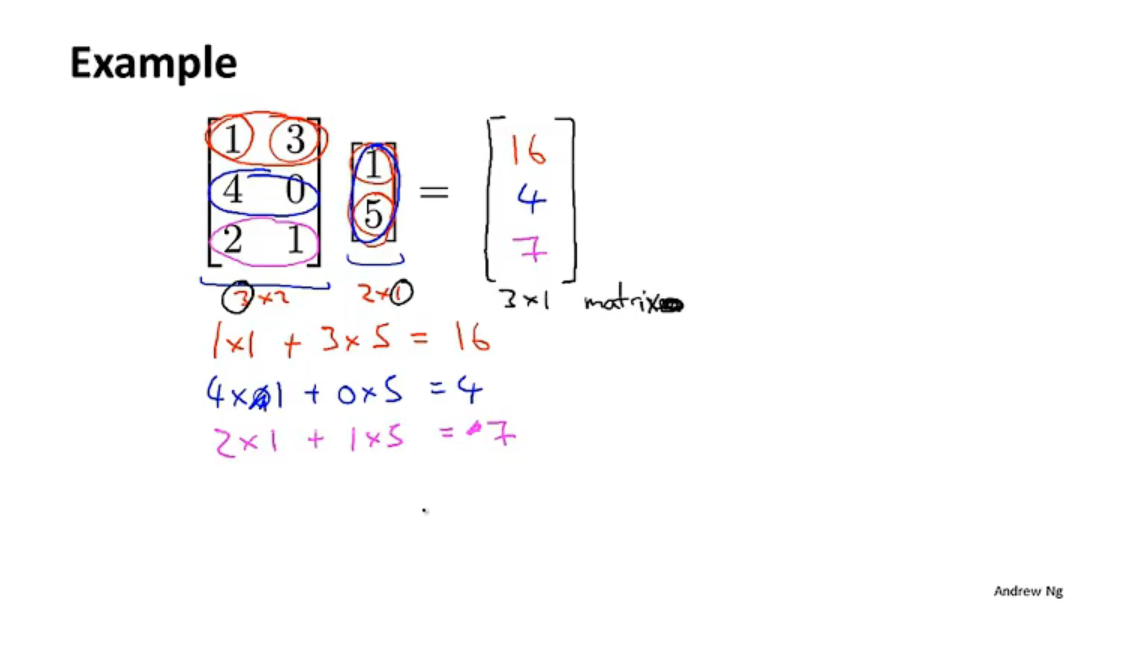 Example
1 3
4 0
2 1
1
5
=
16
4
7
3×2
2×1
3×1 matrix
1×1 + 3×5 = 16
4×1 + 0×5 = 4
2×1 + 1×5 = 7
Andrew Ng